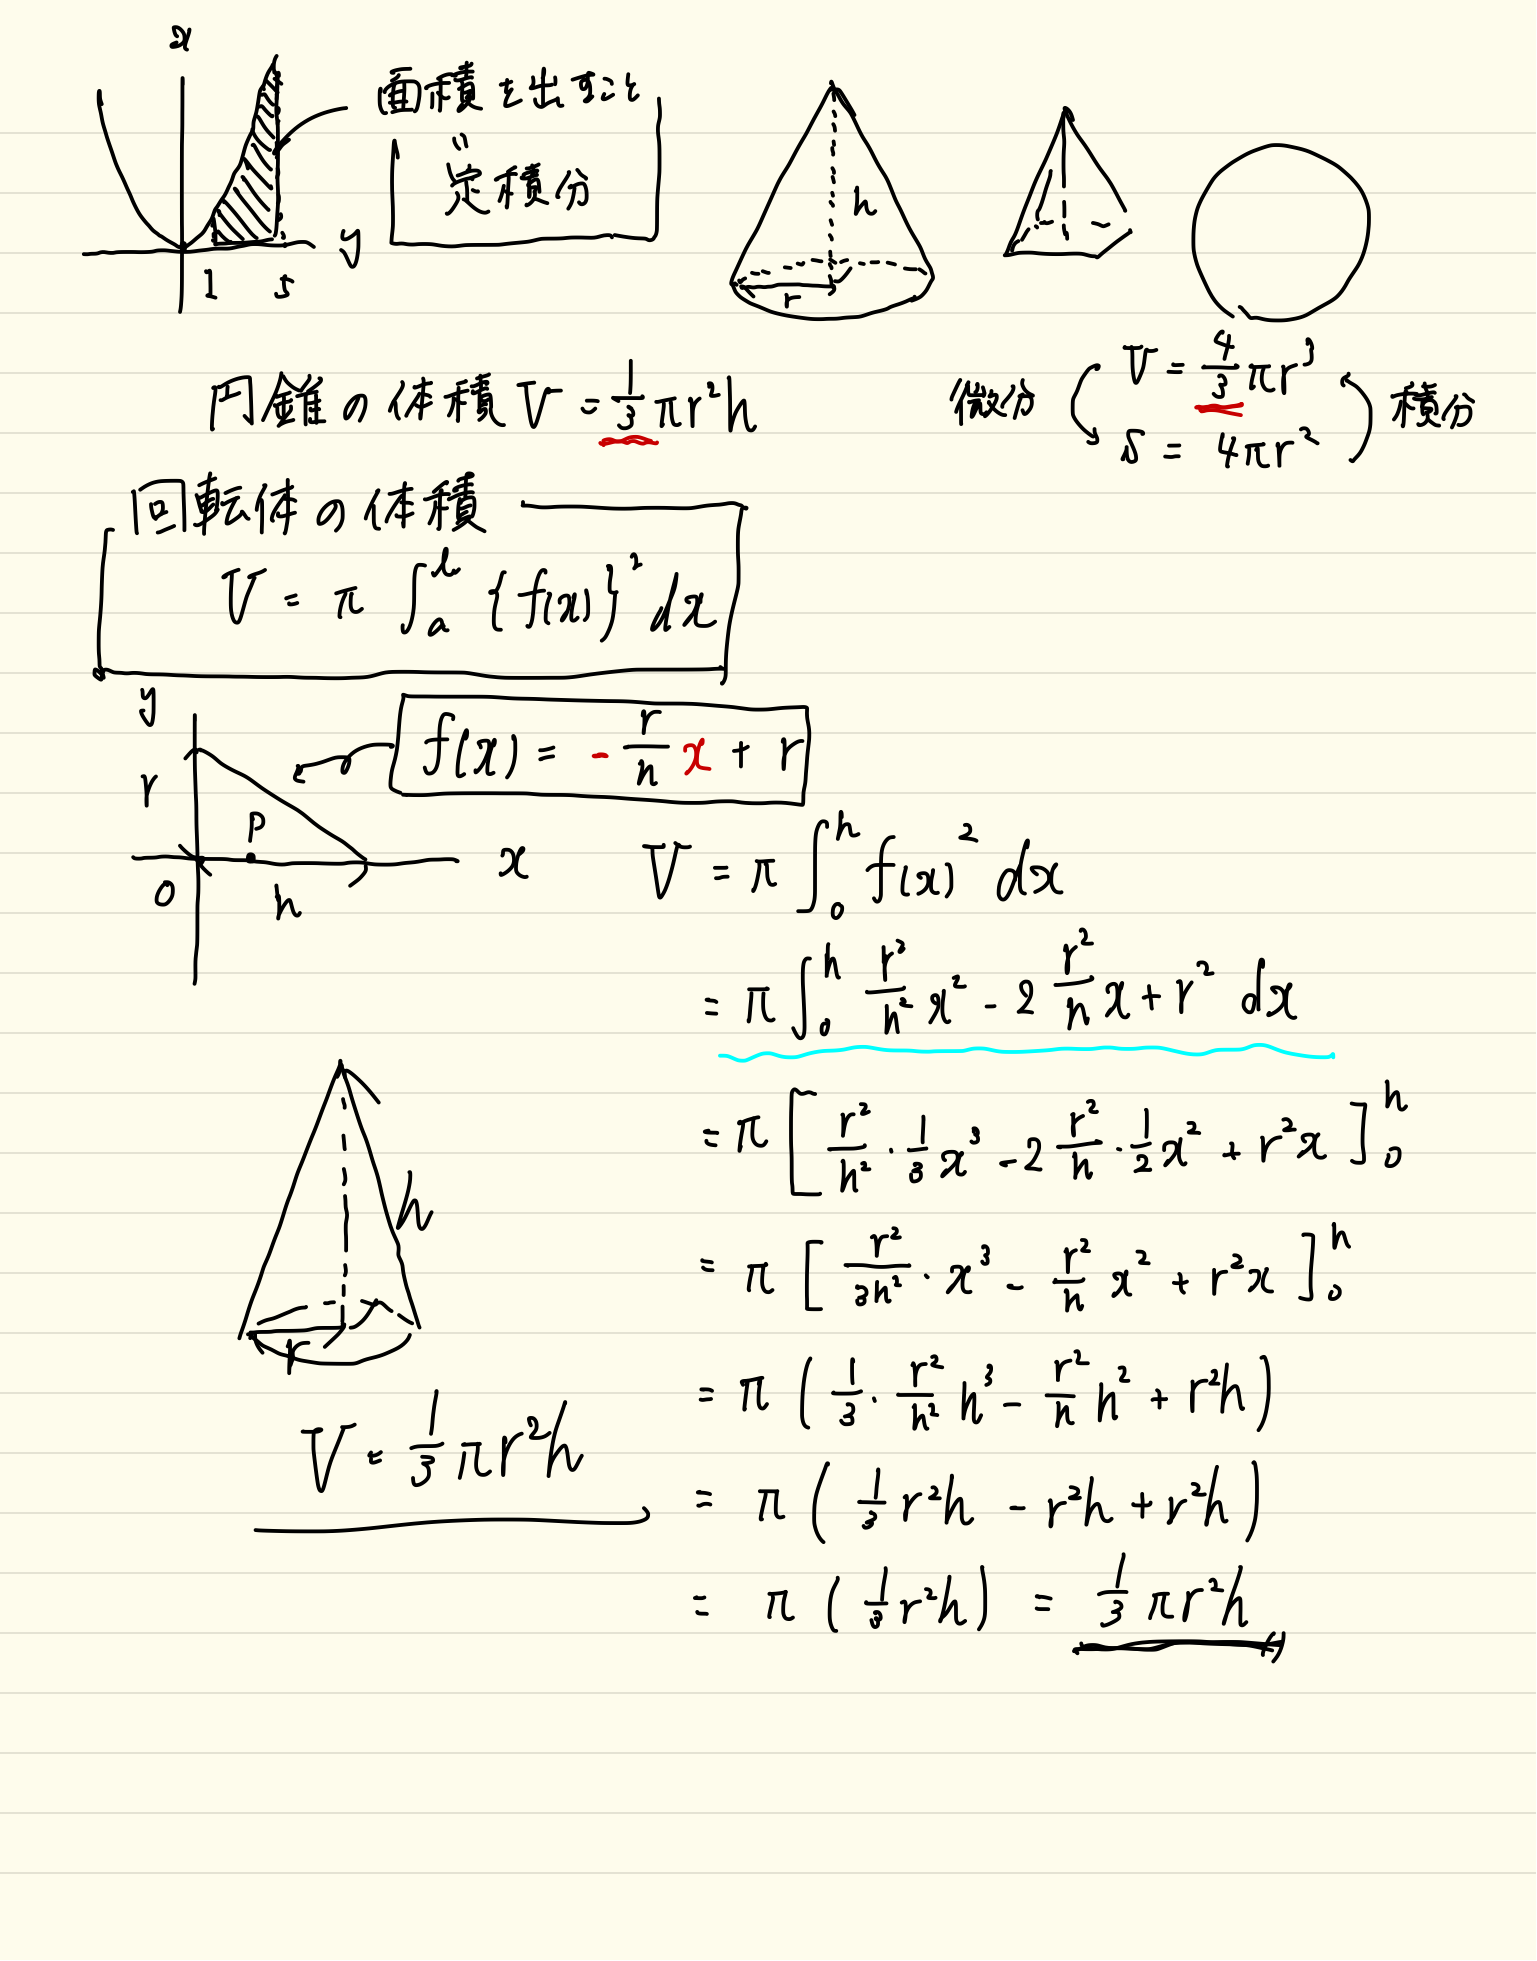 x
面積を出すこと
〃
定積分
y
1 5
h
r
円錐の体積 V = 1/3 πr²h
微分
V = 4/3 πr³
S = 4πr²
積分
回転体の体積
V = π ∫_a^b {f(x)}² dx
y
f(x) = - r/h x + r
r
P
0
h
x
V = π ∫_0^h f(x)² dx
= π ∫_0^h r²/h² x² - 2 r²/h x + r² dx
= π [ r²/h² · 1/3 x³ - 2 r²/h · 1/2 x² + r²x ]_0^h
h
= π [ r²/3h² · x³ - r²/h x² + r²x ]_0^h
r
= π ( 1/3 · r²/h² h³ - r²/h h² + r²h )
V = 1/3 πr²h
= π ( 1/3 r²h - r²h + r²h )
= π ( 1/3 r²h ) = 1/3 πr²h